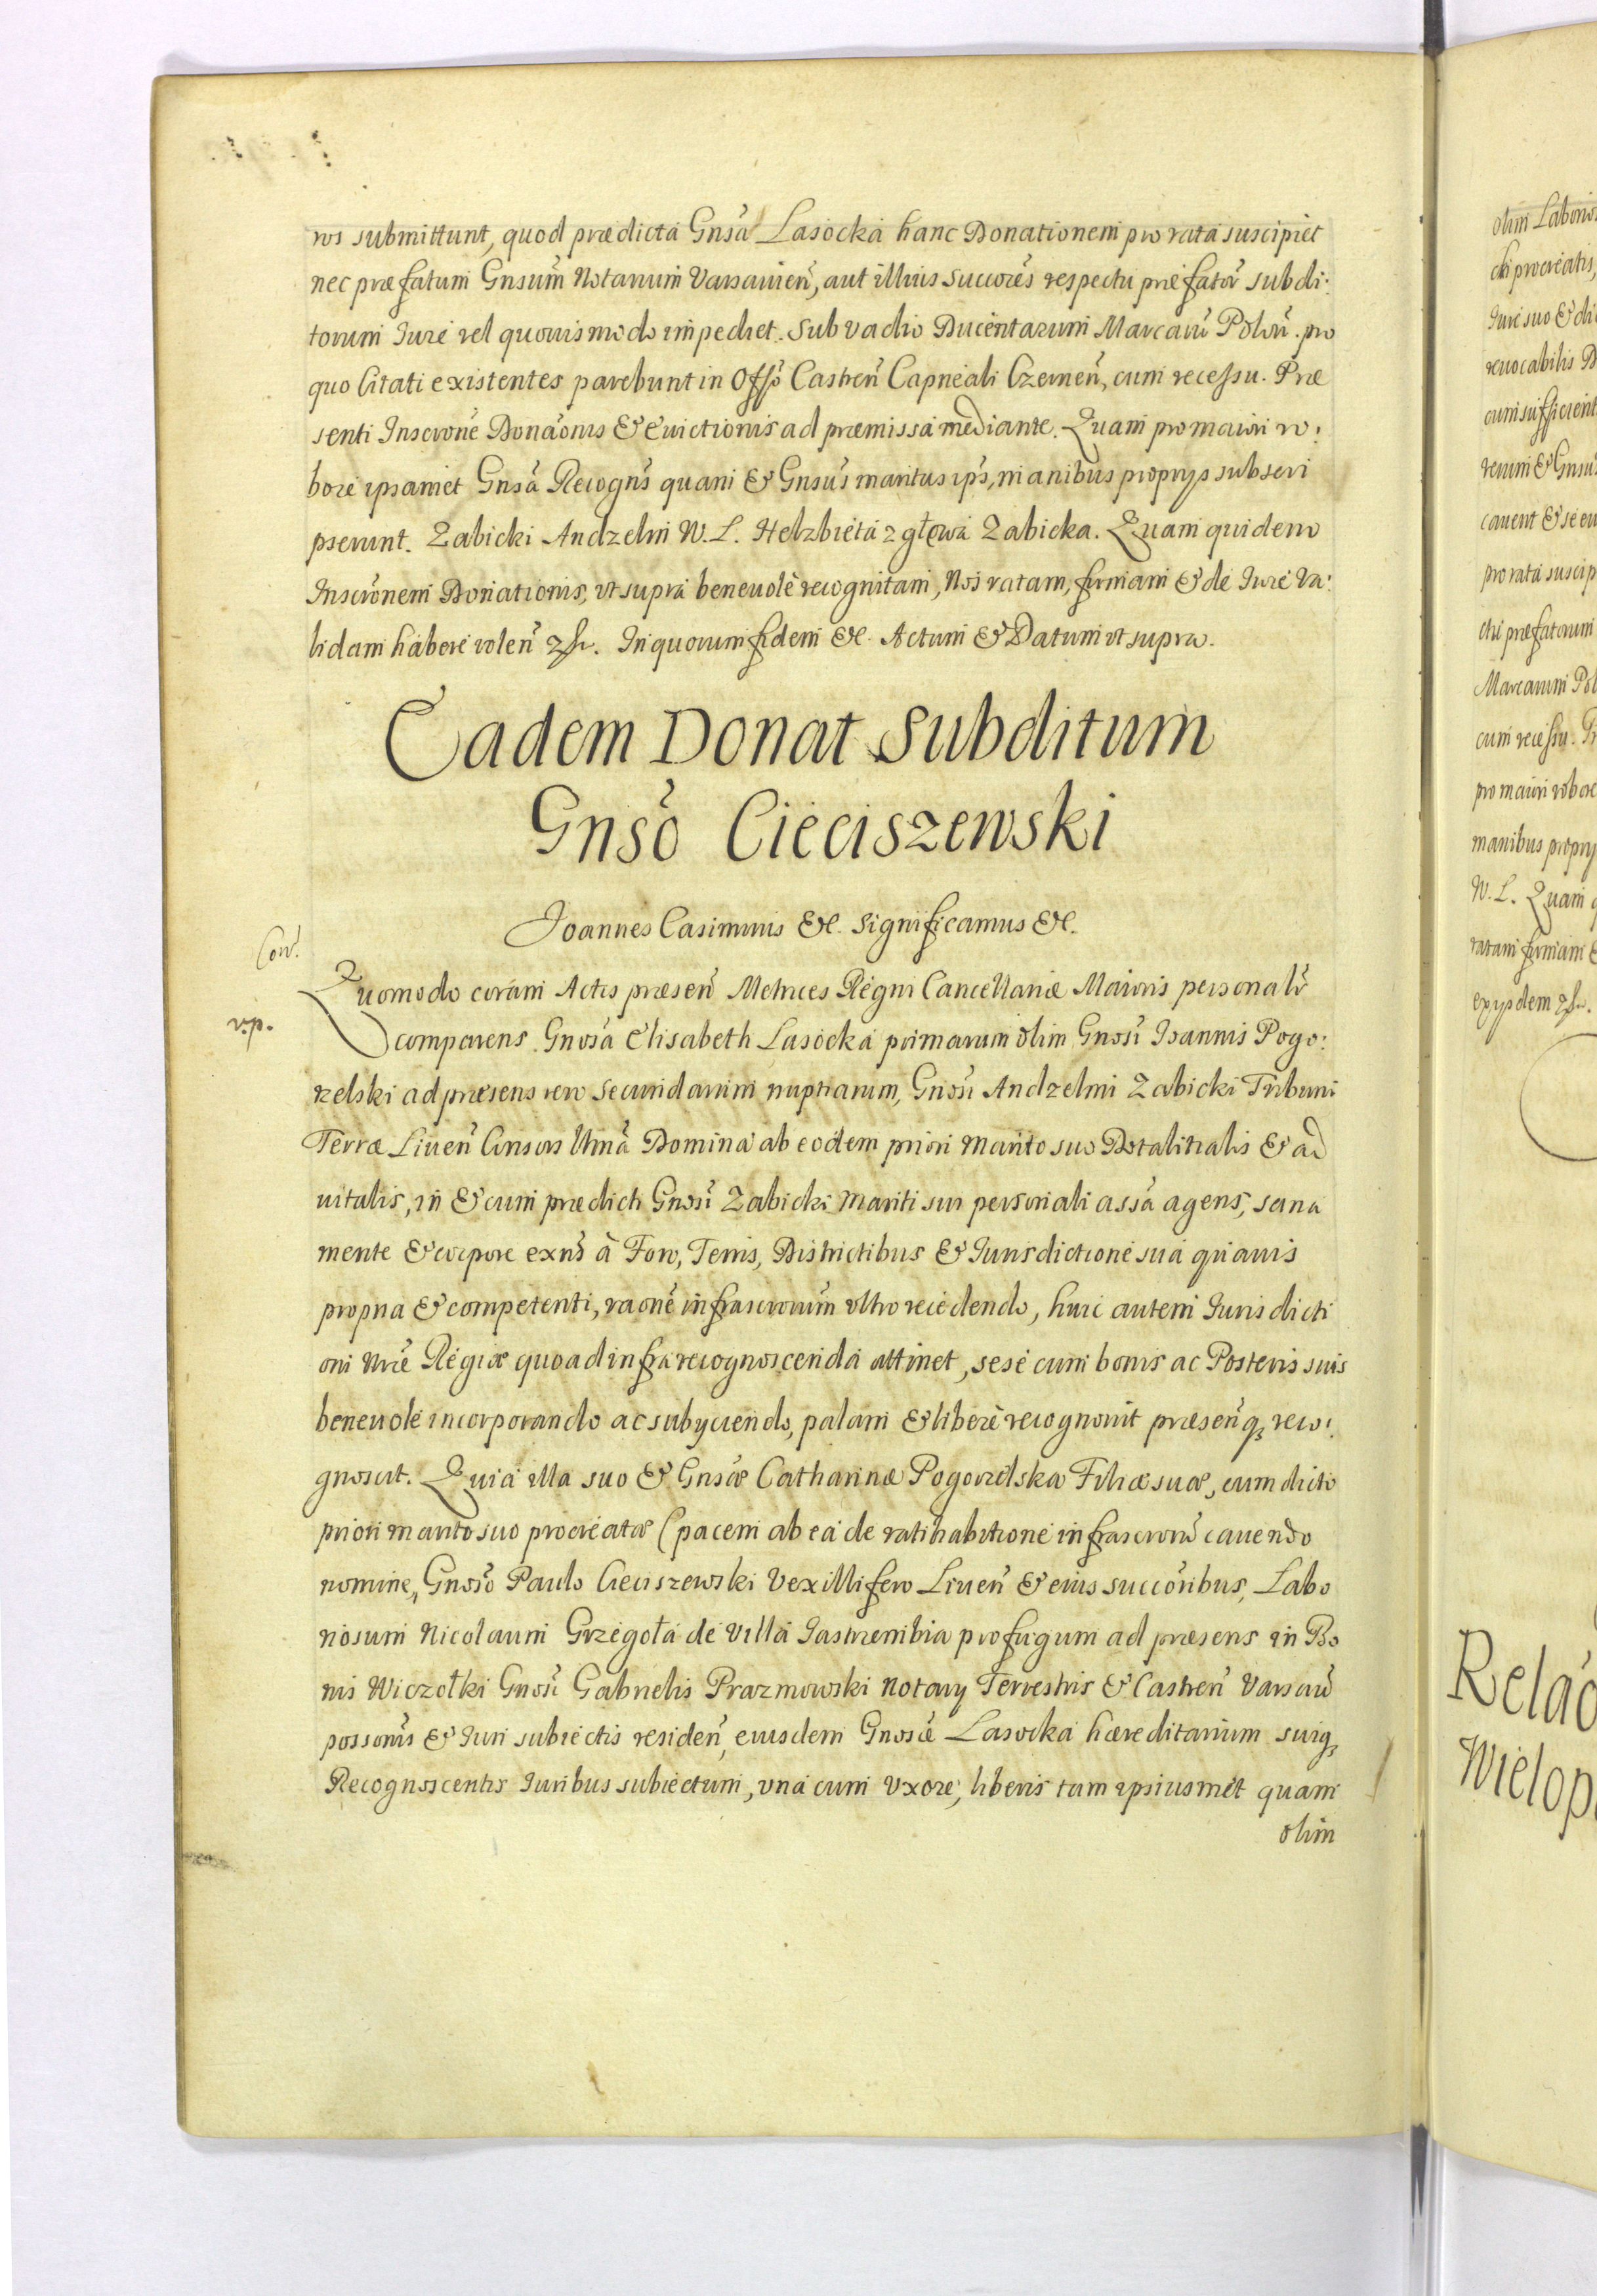 ros submittunt, quod prædicta Gnsa Lasocka hanc Donationem pro rata suscipiet
nec præfatum Gnsum Notarium Varsavien, aut illius succores respectu præfator subdi:
torum Iure vel quouismodo impediet. Sub vadio Ducentarum Marcaru Polon. pro
quo Citati existentes parebunt in Offo Castren Capneali Czernen, cum recessu. Præ
senti Inscrone Donaonis & Euictionis ad præmissa mediante. Quam pro maiori ro:
bore ipsamet Gnsa Recogns quam & Gnsus maritus ips, manibus proprys subscri
pserunt. Zabicki Andzelm W. L. Helzbieta z głową Zabicka. Quam quidem
Inscronem Donationis, vt supra beneuole recognitam, Nos ratam, firmam & de Iure va:
lidam habere volen zh. In quorum fidem &c. Actum & Datum vt supra.
Eadem Donat Subditum
Gnso Cieciszewski
Joannes Casimirus &c. Significamus &c.
Con.
Quomodo coram Actis præsen Metrices Regni Cancellariæ Maioris personalr
rip.
comparens Gnosa Elisabeth Lasocka primarum olim Gnosi Ioannis Pogo:
rzelski ad præsens vero secundarum nuptiarum, Gnosi Andzelmi Zabicki Tribuni
Terræ Liuen Consors Vtina Domina ab eodem priori marito suo Dotalitialis & ad
uitalis, in & cum prædicti Gnosi Zabicki mariti sui personali assa agens, sana
mente & corpore exns à Foro, Terris, Districtibus & Iurisdictione sua quauis
propria & competenti, raone infrascrorum vltro recedendo, huic autem Iurisdicti
oni Nræ Regiæ quoad infra recognoscenda attinet, sese cum bonis ac Posteris suis
beneuole incorporando ac subyciendo, palam & libere recognouit præsenq reco:
gnoscit. Quia illa suo & Gnsæ Catharinæ Pogorzelska Filiæ suæ, cum dicto
priori marito suo procreatæ (pacem ab ea de ratihabitione infrascroru cauendo
nomine, Gnoso Paulo Cieciszewski Vexillifero Liuen & eius succoribus, Labo
riosum Nicolaum Grzegoła de Villa Jastrzembia profugum ad præsens in Bo
nis Wiczołki Gnosi Gabrielis Prazmowski Notary Terrestris & Castren Varsau
possonis & Iuri subiectis residen, eiusdem Gnosæ Lasocka hæreditarium suiq
Recognoscentis Iuribus subiectum, vna cum Vxore, liberis tam ipsiusmet quam
olim
olim Laborio
Iuri suo & di
reuocabilis D
cum sufficient
rerum & Gnsus
cauent & se eu
pro rata suscip
ctu præfatorum
Marcarum Pol
cum recessu. Pr
pro maiori robore
manibus propry
W. L. Quam q
ratam firmam &
Relao
Wielop